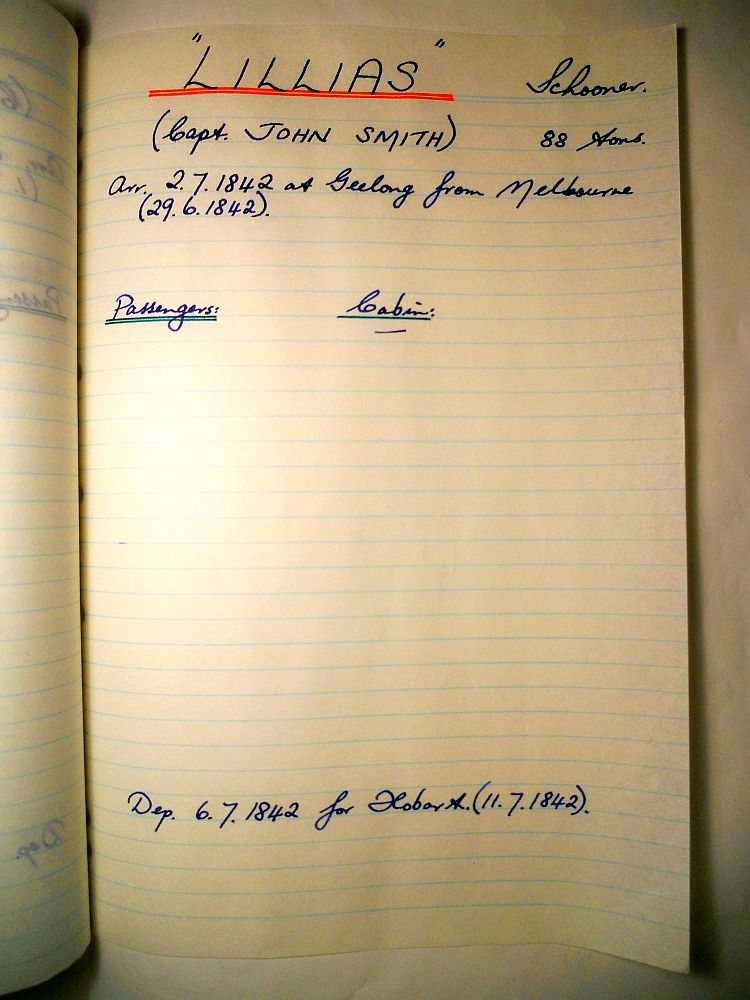 "LILLIAS" Schooner.
(Capt. JOHN SMITH) 88 Tons.
Arr. 2.7.1842 at Geelong from Melbourne
(29.6.1842).
Passengers: Cabin:
—
Dep. 6.7.1842 for Hobart. (11.7.1842).